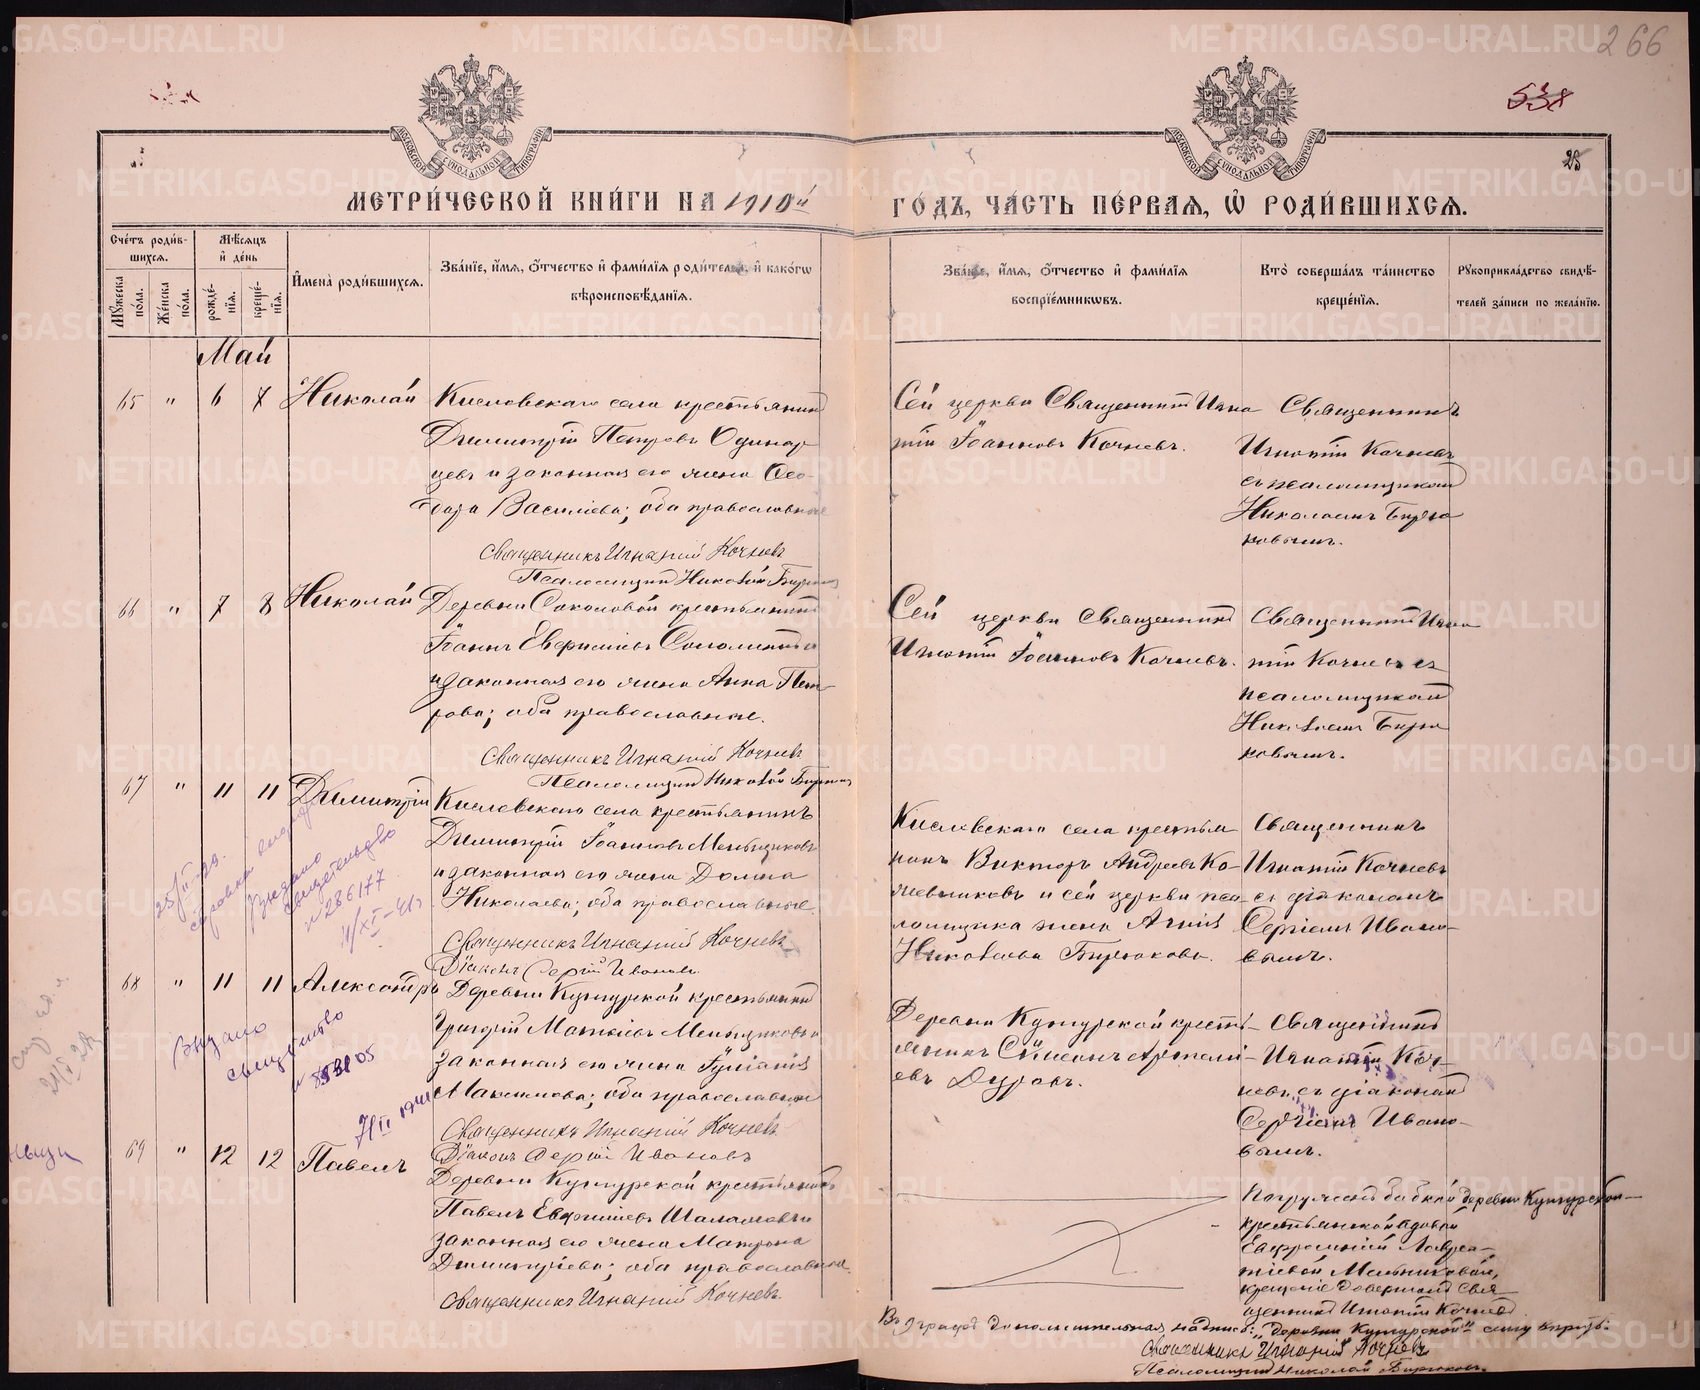 266
538
25
МОСКОВСКОЙ СѴНОДАЛЬНОЙ ТИПОГРАФІИ
МОСКОВСКОЙ СѴНОДАЛЬНОЙ ТИПОГРАФІИ
МЕТРИ́ЧЕСКОЙ КНИ́ГИ НА 1910й
ГО́ДЪ, ЧА́СТЬ ПЕ́РВАЯ, Ѡ҆ РОДИ́ВШИХСЯ.
Сче́тъ роди́в-
шихся.
Мѣ́сяцъ
и҆ де́нь
Мꙋ́жеска по́ла.
Же́нска по́ла.
рожде́-
нїя.
креще́-
нїя.
И҆мена̀ роди́вшихся.
Зва́нїе, и҆́мя, ѻ҆́тчество и҆ фами́лїя роди́телей, и҆ како́гѡ
вѣроисповѣ́данїя.
Зва́нїе, и҆́мя, ѻ҆́тчество и҆ фами́лїя
воспрїе́мникѡвъ.
Кто̀ соверша́лъ та́инство
креще́нїя.
Рꙋкоприкла́дство свидѣ́-
телей за́писи по жела́нїю.
Май
65 " 6 7 Николай
Кисловскаго села крестьянинъ
Димитрій Петровъ Одинар-
цевъ и законная его жена Ѳео-
дора Васильева; оба православные
Священникъ Игнатій Кочневъ
Псаломщикъ Николай Бирюковъ
Сей церкви Священникъ Игна
тій Іоанновъ Кочневъ.
Священникъ
Игнатій Кочневъ
съ псаломщикомъ
Николаемъ Бирю
ковымъ.
66 " 7 8 Николай
Деревни Соколовой крестьянинъ
Іоаннъ Евфиміевъ
и законная его жена Анна Пет-
рова; оба православные.
Священникъ Игнатій Кочневъ
Псаломщикъ Николай Бирюковъ
Сей церкви Священникъ
Игнатій Іоанновъ Кочневъ.
Священникъ Игна
тій Кочневъ съ
псаломщикомъ
Николаемъ Бирю
ковымъ.
67 " 11 11 Димитрій
Кисловскаго села крестьянинъ
Димитрій Іоанновъ Меньщиковъ
и законная его жена Домна
Николаева; оба православные.
Священникъ Игнатій Кочневъ
Діаконъ Сергій Ивановъ.
справка
Выдано
свидетельство
№ 286177
4/XI-41г
Кисловскаго села крестья
нинъ Викторъ Андреевъ Ко-
жевниковъ и сей церкви пса-
ломщика жена Агнія
Николаева Бирюкова.
Священникъ
Игнатій Кочневъ
съ діакономъ
Сергіемъ Ивано-
вымъ.
68 " 11 11 Александръ
Деревни Кунгурской крестьянинъ
Григорій Матвѣевъ Меньщиковъ и
законная его жена Іуліанія
Максимова; оба православные
Священникъ Игнатій Кочневъ
Діаконъ Сергій Ивановъ
Выдано
свид-ство
Деревни Кунгурской кресть-
янинъ Сѵмеонъ
евъ Дуровъ.
Священникъ
Игнатій Коч-
невъ съ діакономъ
Сергіемъ Ивано-
вымъ.
69 " 12 12 Павелъ
Деревни Кунгурской крестьянинъ
Павелъ Евфиміевъ Шаламовъ и
законная его жена Матрона
Димитріева; оба православные.
Священникъ Игнатій Кочневъ.
Погруженъ бабкой деревни Кунгурской
крестьянской вдовой
Евфросиніей Лаврен-
тіевой Мельниковой,
крещеніе довершилъ Свя-
щенникъ Игнатій Кочневъ
Въ графѣ дополнительная надпись: „деревни Кунгурской"
Священникъ Игнатій Кочневъ
Псаломщикъ Николай Бирюковъ.
METRIKI.GASO-URAL.RU